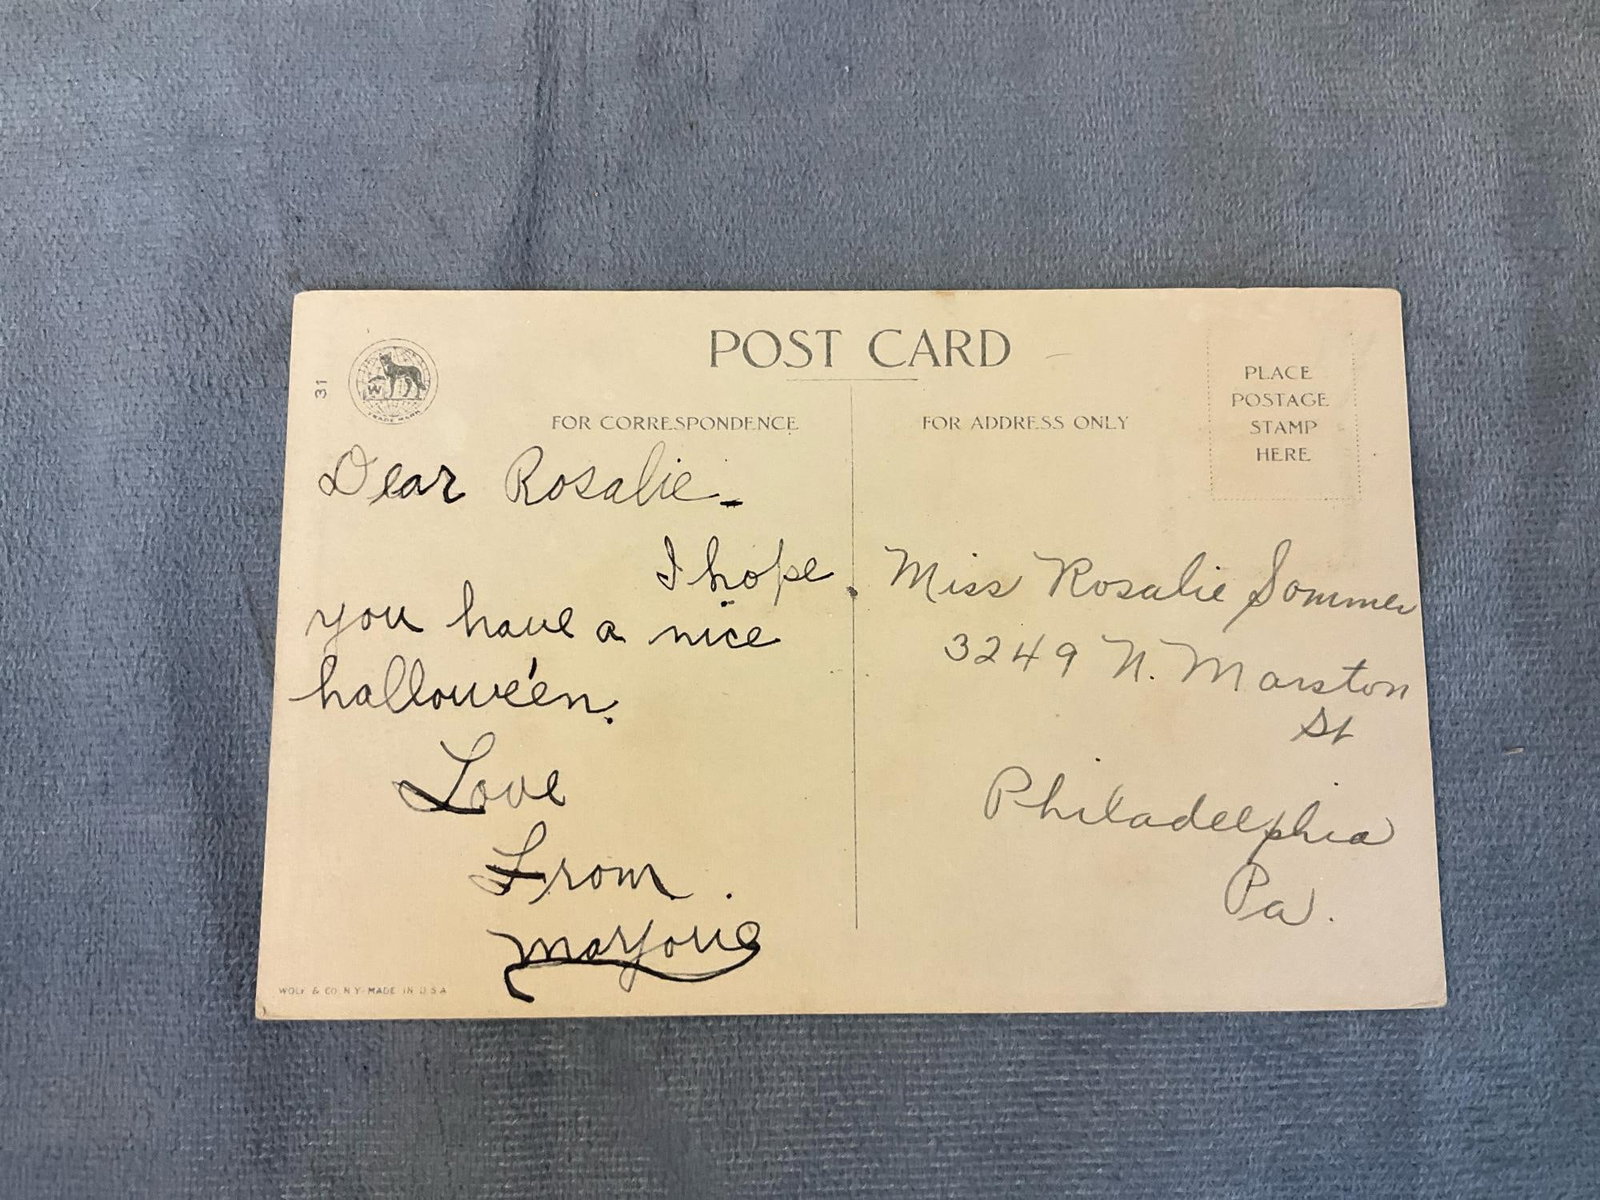 POST CARD
31
W
TRADE MARK
FOR CORRESPONDENCE
Dear Rosalie-
I hope
you have a nice
hallowe'en.
Love
From
Marjorie
WOLF & CO. N.Y. MADE IN U.S.A
FOR ADDRESS ONLY
PLACE
POSTAGE
STAMP
HERE
Miss Rosalie Sommer
3249 N. Marston
St
Philadelphia
Pa.